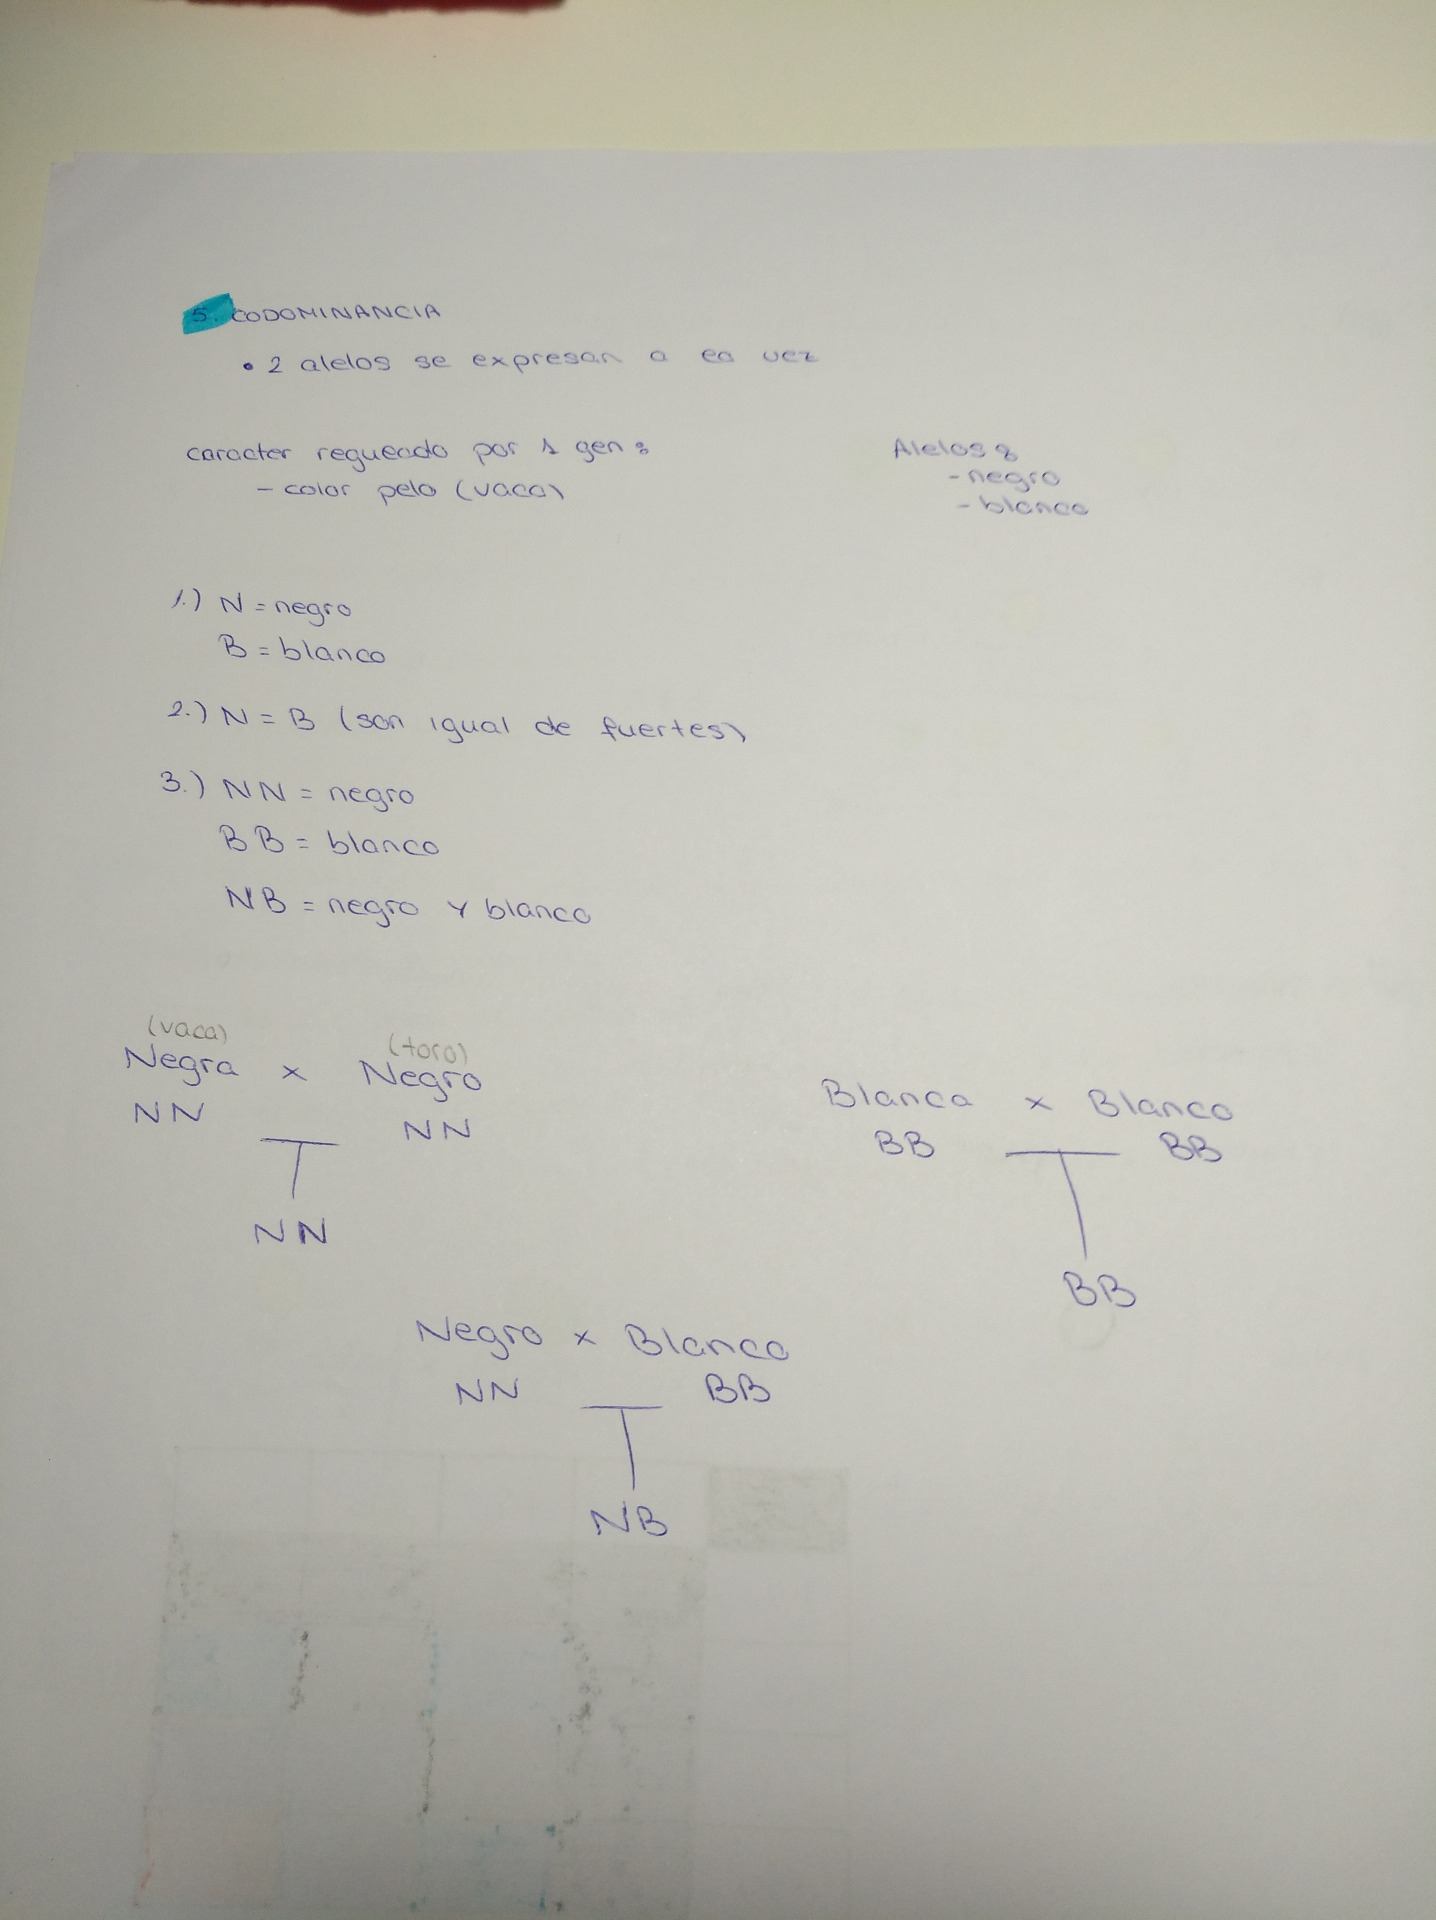 5. CODOMINANCIA
• 2 alelos se expresan a la vez
caracter regulado por 1 gen:
- color pelo (vaca)
Alelos:
- negro
- blanco
1.) N = negro
B = blanco
2.) N = B (son igual de fuertes)
3.) NN = negro
BB = blanco
NB = negro y blanco
(vaca) (toro)
Negra x Negro
NN NN
NN
Blanca x Blanco
BB BB
BB
Negro x Blanco
NN BB
NB